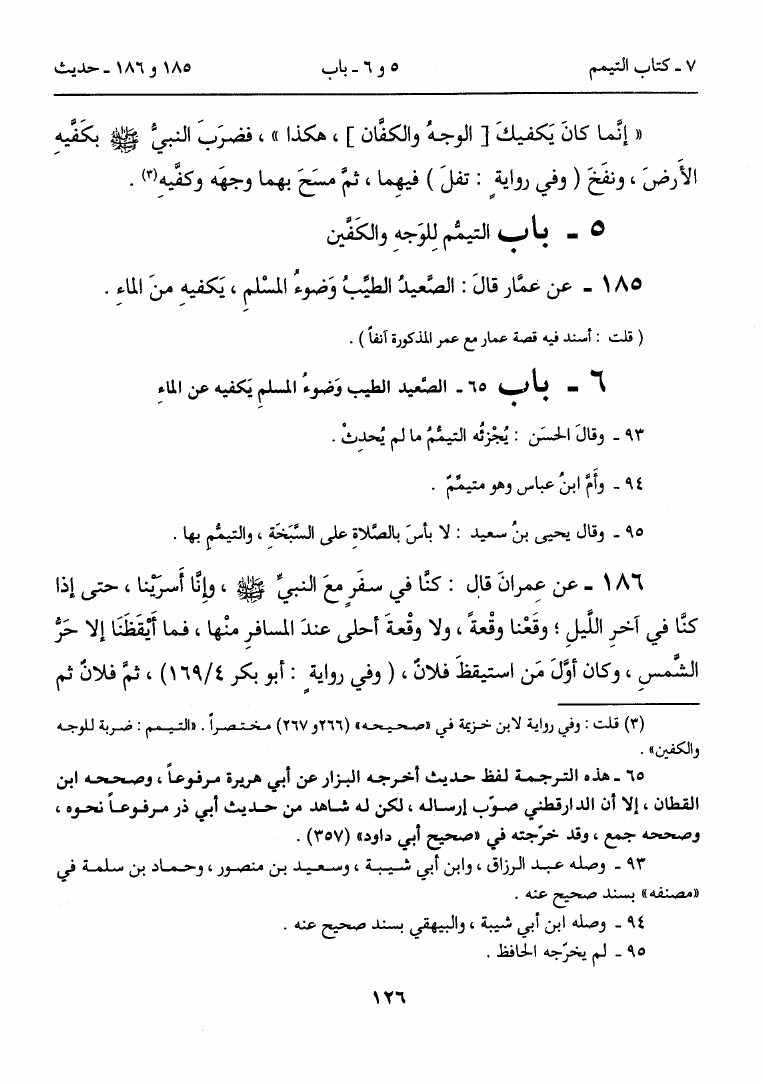 ٧ ـ كتاب التيمم ٥ و ٦ ـ باب ١٨٥ و ١٨٦ ـ حديث
« إنَّما كانَ يَكفيكَ [ الوجهُ والكفَّان ] ، هكذا » ، فضرَبَ النبيُّ ﷺ بكفَّيهِ
الأرضَ ، ونفَخَ ( وفي روايةٍ : تفلَ ) فيهِما ، ثمَّ مسَحَ بهما وجهَه وكفَّيهِ(٣) .
٥ ـ باب التيمُّم لِلوَجهِ والكَفَّين
١٨٥ ـ عن عمَّار قالَ : الصَّعيدُ الطيِّبُ وَضوءُ المسْلمِ ، يَكفيهِ منَ الماءِ .
( قلت : أسند فيه قصة عمار مع عمر المذكورة آنفاً ) .
٦ ـ باب ٦٥ ـ الصَّعيد الطيب وَضوءُ المسلمِ يَكفيه عن الماءِ
٩٣ ـ وقالَ الحسَن : يُجْزئُه التيمُّمُ ما لم يُحدِثْ .
٩٤ ـ وأَمَّ ابنُ عباس وهو متيمِّمٌ .
٩٥ ـ وقال يحيى بنُ سعيد : لا بأسَ بالصَّلاةِ على السَّبَخَةِ ، والتيمُّمِ بها .
١٨٦ ـ عن عِمرانَ قال : كنَّا في سفَرٍ معَ النبيِّ ﷺ ، وإنَّا أَسرَيْنا ، حتى إذا
كنَّا في آخرِ اللَّيلِ ؛ وقَعْنا وقْعةً ، ولا وقْعةَ أحلى عندَ المسافرِ منْها ، فما أَيْقَظَنَا إلا حَرُّ
الشَّمسِ ، وكان أوَّلَ مَن استيقظَ فلانٌ ، ( وفي روايةٍ : أبو بكر ٤/١٦٩ ) ، ثمَّ فلانٌ ثم
(٣) قلت : وفي رواية لابن خزيمة في «صحيحه» (٢٦٦و ٢٦٧) مختصراً . «التيمم : ضربة للوجه
والكفين» .
٦٥ ـ هذه الترجمة لفظ حديث أخرجه البزار عن أبي هريرة مرفوعاً ، وصححه ابن
القطان ، إلا أن الدارقطني صوّب إرساله ، لكن له شاهد من حديث أبي ذر مرفوعاً نحوه ،
وصححه جمع ، وقد خرّجته في «صحيح أبي داود» (٣٥٧) .
٩٣ ـ وصله عبد الرزاق ، وابن أبي شيبة ، وسعيد بن منصور ، وحماد بن سلمة في
«مصنفه» بسند صحيح عنه .
٩٤ ـ وصله ابن أبي شيبة ، والبيهقي بسند صحيح عنه .
٩٥ ـ لم يخرّجه الحافظ .
١٢٦